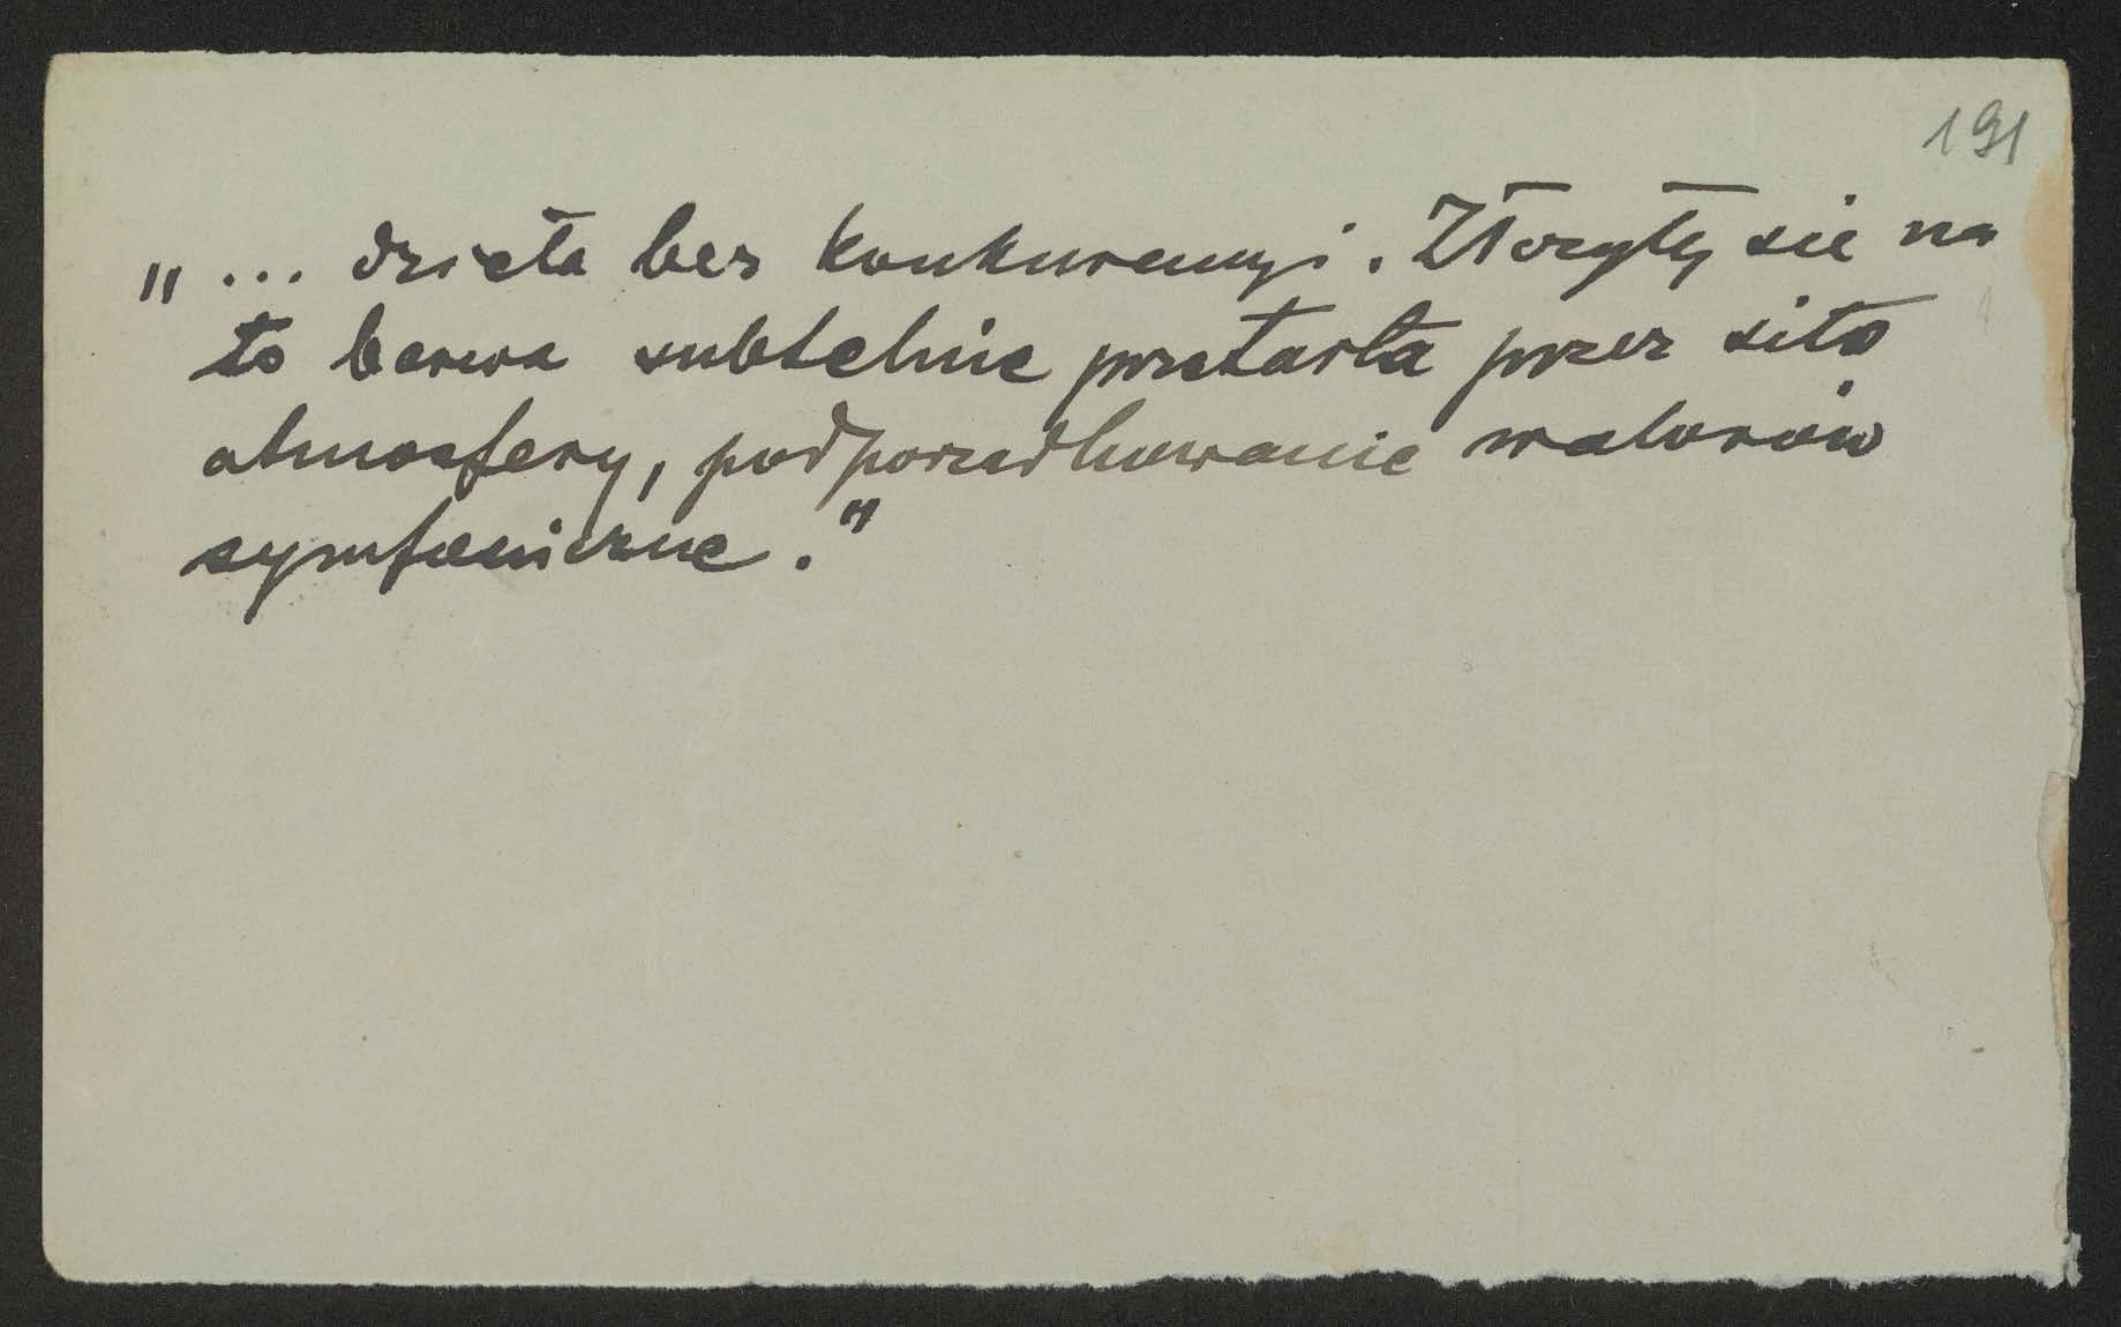 191
„... dzieła bez konkurencyi. Złożyły się na
to barwa subtelnie przetarta przez sito
atmosfery, podporządkowanie walorów
symfoniczne."